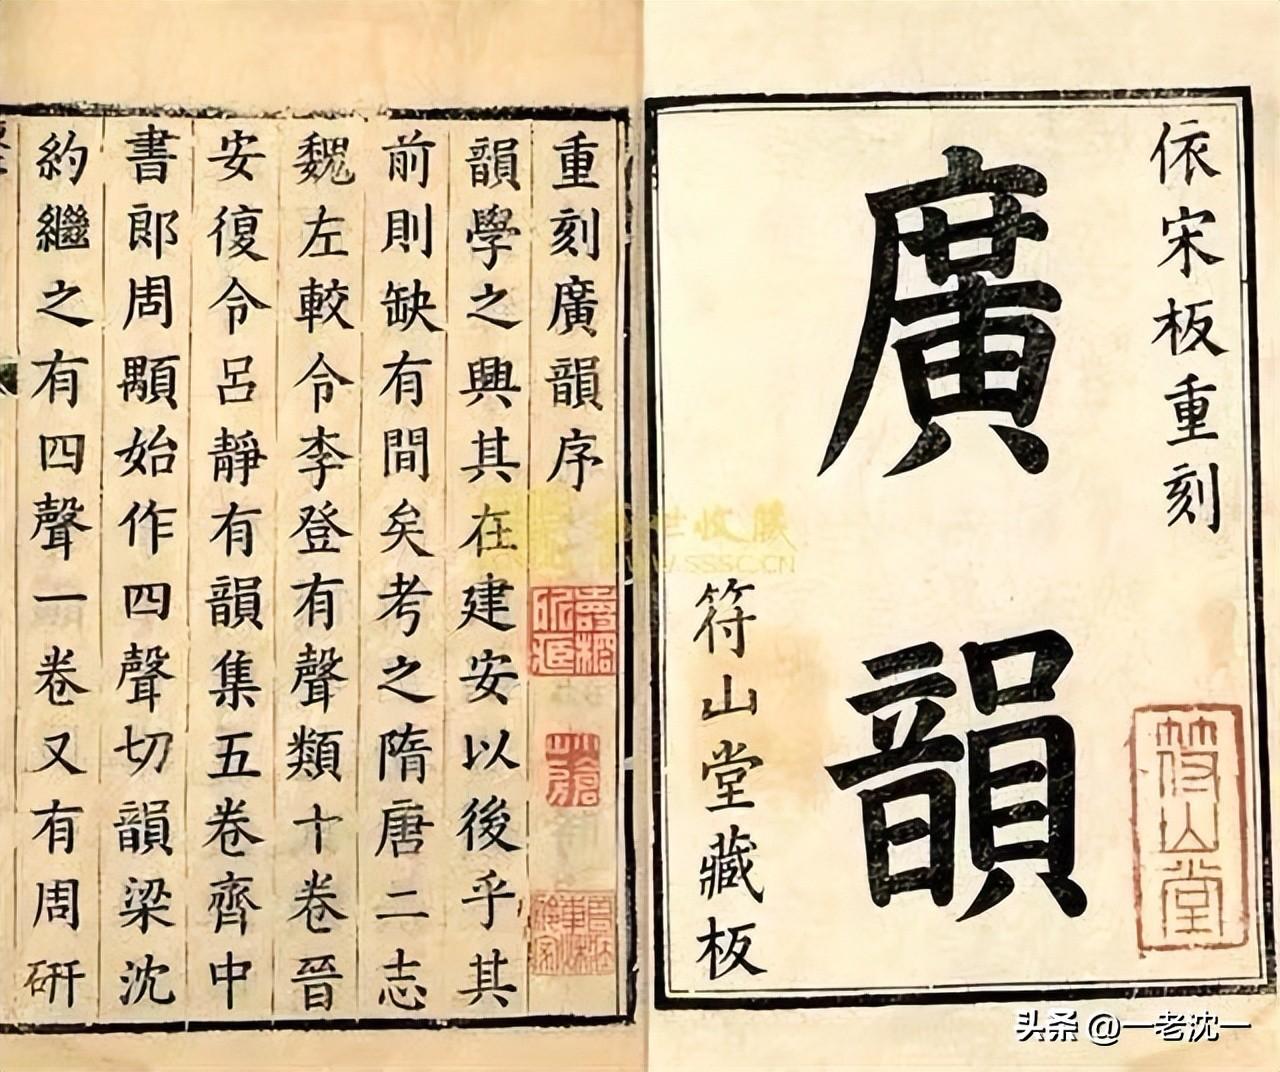 依宋板重刻
廣韻
符山堂藏板
符山堂
重刻廣韻序
韻學之興其在建安以後乎其
前則缺有間矣考之隋唐二志
魏左較令李登有聲類十卷晉
安復令呂靜有韻集五卷齊中
書郎周顒始作四聲切韻梁沈
約繼之有四聲一卷又有周研
世收藏
WWW.SSSC.CN
头条 @一老沈一